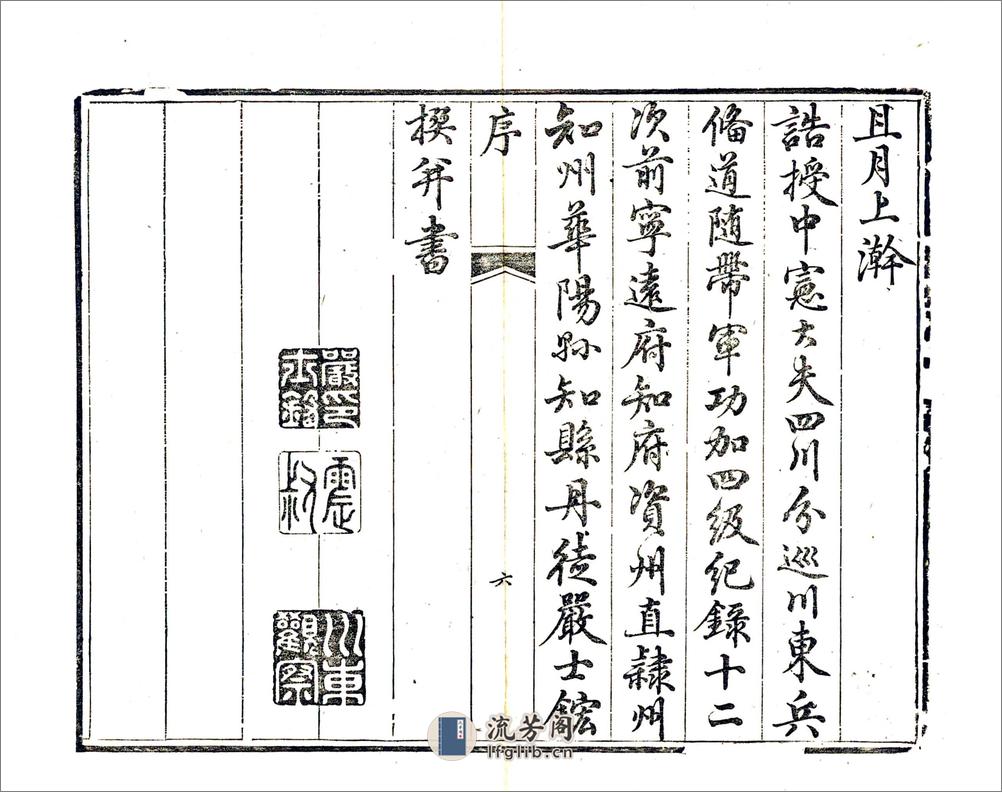 且月上澣
誥授中憲大夫四川分巡川東兵
備道随帶軍功加四級紀錄十二
次前寧遠府知府資州直隸州
知州華陽縣知縣丹徒嚴士鋐
序
六
撰并書
嚴印士鋐
震叔
川東觀察
流芳阁
lfglib.cn